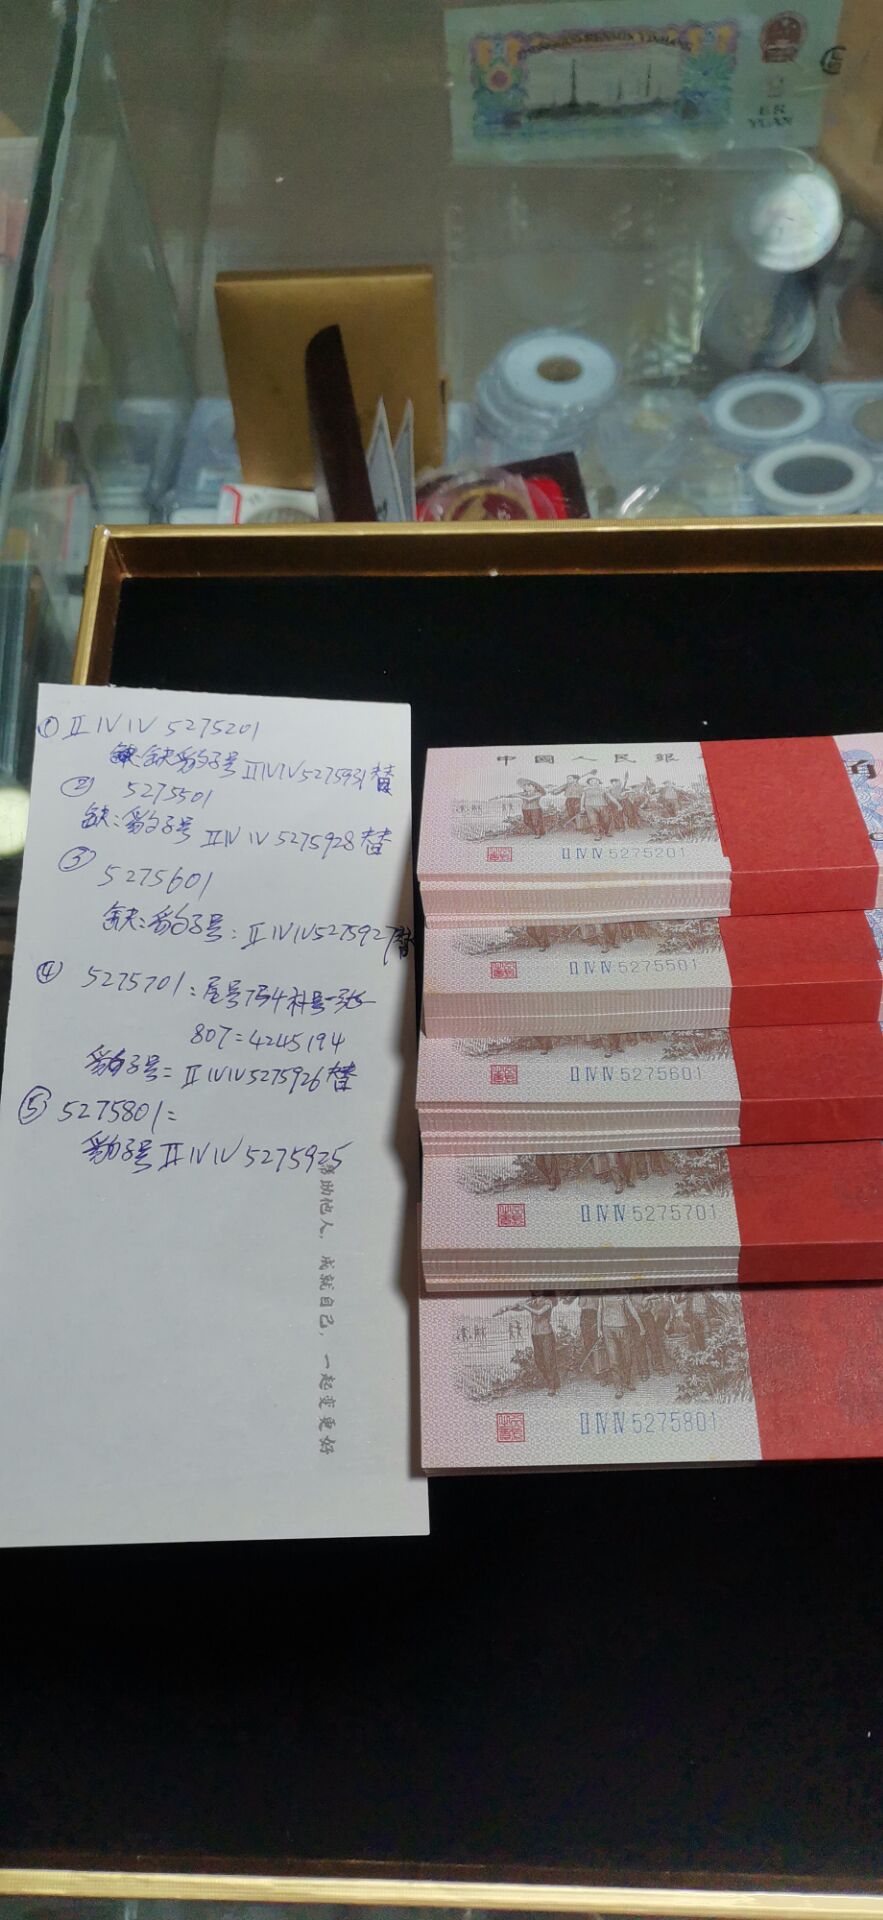 ER
YUAN
① ⅡⅣⅣ 5275201
缺豹子号ⅡⅣⅣ5275931替
② 5275501
缺:豹子号ⅡⅣⅣ5275928替
③ 5275601
缺:豹子号:ⅡⅣⅣ5275927替
④ 5275701:尾号754补号一张
807=4245194
豹子号=ⅡⅣⅣ5275926替
⑤ 5275801=
豹子号ⅡⅣⅣ5275925
帮助他人,成就自己,一起变更好
中國人民銀
角
ⅡⅣⅣ5275201
ⅡⅣⅣ5275501
ⅡⅣⅣ5275601
ⅡⅣⅣ5275701
ⅡⅣⅣ5275801